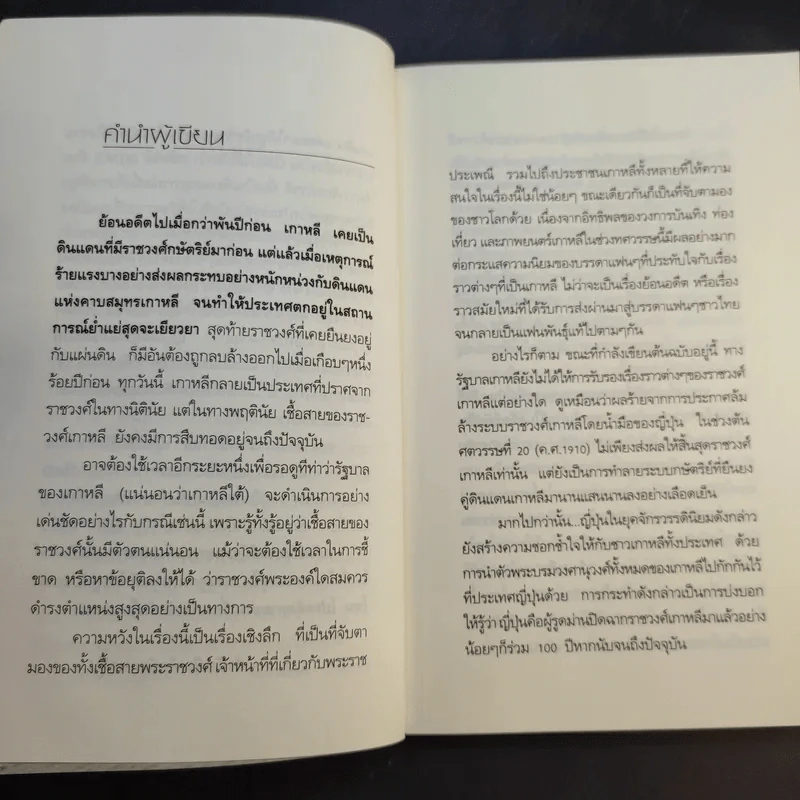 คำนำผู้เขียน
ย้อนอดีตไปเมื่อกว่าพันปีก่อน เกาหลี เคยเป็น
ดินแดนที่มีราชวงศ์กษัตริย์มาก่อน แต่แล้วเมื่อเหตุการณ์
ร้ายแรงบางอย่างส่งผลกระทบอย่างหนักหน่วงกับดินแดน
แห่งคาบสมุทรเกาหลี จนทำให้ประเทศตกอยู่ในสถาน
การณ์ย่ำแย่สุดจะเยียวยา สุดท้ายราชวงศ์ที่เคยยืนยงอยู่
กับแผ่นดิน ก็มีอันต้องถูกลบล้างออกไปเมื่อเกือบๆหนึ่ง
ร้อยปีก่อน ทุกวันนี้ เกาหลีกลายเป็นประเทศที่ปราศจาก
ราชวงศ์ในทางนิตินัย แต่ในทางพฤตินัย เชื้อสายของราช-
วงศ์เกาหลี ยังคงมีการสืบทอดอยู่จนถึงปัจจุบัน
อาจต้องใช้เวลาอีกระยะหนึ่งเพื่อรอดูทีท่าว่ารัฐบาล
ของเกาหลี (แน่นอนว่าเกาหลีใต้) จะดำเนินการอย่าง
เด่นชัดอย่างไรกับกรณีเช่นนี้ เพราะรู้ทั้งรู้อยู่ว่าเชื้อสายของ
ราชวงศ์นั้นมีตัวตนแน่นอน แม้ว่าจะต้องใช้เวลาในการชี้
ขาด หรือหาข้อยุติลงให้ได้ ว่าราชวงศ์พระองค์ใดสมควร
ดำรงตำแหน่งสูงสุดอย่างเป็นทางการ
ความหวังในเรื่องนี้เป็นเรื่องเชิงลึก ที่เป็นที่จับตา
มองของทั้งเชื้อสายพระราชวงศ์ เจ้าหน้าที่ที่เกี่ยวกับพระราช
ประเพณี รวมไปถึงประชาชนเกาหลีทั้งหลายที่ให้ความ
สนใจในเรื่องนี้ไม่ใช่น้อยๆ ขณะเดียวกันก็เป็นที่จับตามอง
ของชาวโลกด้วย เนื่องจากอิทธิพลของวงการบันเทิง ท่อง
เที่ยว และภาพยนตร์เกาหลีในช่วงทศวรรษนี้มีผลอย่างมาก
ต่อกระแสความนิยมของบรรดาแฟนๆที่ประทับใจกับเรื่อง
ราวต่างๆที่เป็นเกาหลี ไม่ว่าจะเป็นเรื่องย้อนอดีต หรือเรื่อง
ราวสมัยใหม่ที่ได้รับการส่งผ่านมาสู่บรรดาแฟนๆชาวไทย
จนกลายเป็นแฟนพันธุ์แท้ไปตามๆกัน
อย่างไรก็ตาม ขณะที่กำลังเขียนต้นฉบับอยู่นี้ ทาง
รัฐบาลเกาหลียังไม่ได้ให้การรับรองเรื่องราวต่างๆของราชวงศ์
เกาหลีแต่อย่างใด ดูเหมือนว่าผลร้ายจากการประกาศล้ม
ล้างระบบราชวงศ์เกาหลีโดยน้ำมือของญี่ปุ่น ในช่วงต้น
ศตวรรษที่ 20 (ค.ศ.1910) ไม่เพียงส่งผลให้สิ้นสุดราชวงศ์
เกาหลีเท่านั้น แต่ยังเป็นการทำลายระบบกษัตริย์ที่ยืนยง
คู่ดินแดนเกาหลีมานานแสนนานลงอย่างเลือดเย็น
มากไปกว่านั้น...ญี่ปุ่นในยุคจักรวรรดินิยมดังกล่าว
ยังสร้างความชอกช้ำใจให้กับชาวเกาหลีทั้งประเทศ ด้วย
การนำตัวพระบรมวงศานุวงศ์ทั้งหมดของเกาหลีไปกักกันไว้
ที่ประเทศญี่ปุ่นด้วย การกระทำดังกล่าวเป็นการบ่งบอก
ให้รู้ว่า ญี่ปุ่นคือผู้รูดม่านปิดฉากราชวงศ์เกาหลีมาแล้วอย่าง
น้อยๆก็ร่วม 100 ปีหากนับจนถึงปัจจุบัน